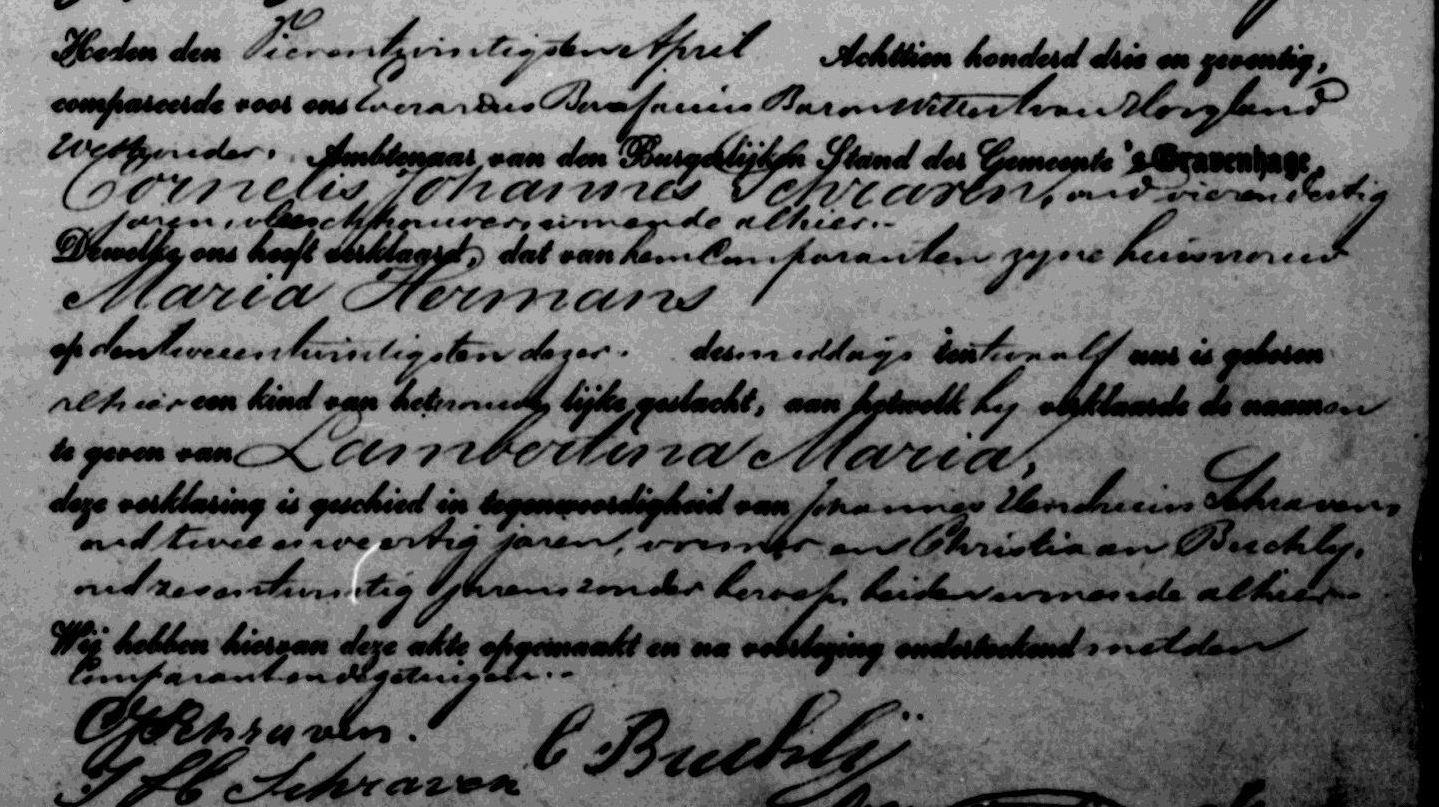 Heden den Vierentwintigsten April Achttien honderd drie en zeventig,
compareerde voor ons Everardus Bonefacius Baron Wittert van Hoogland
Wethouder. Ambtenaar van den Burgerlijken Stand der Gemeente 's Gravenhage,
Cornelis Johannes Schraven, oud vierendertig
jaren, vleeschhouwer, wonende alhier.--
Dewelke ons heeft verklaard, dat van hem Comparanten zyne huisvrouw
Maria Hermans
op den tweeentwintigsten dezer. des middags ten twaalf uur is geboren
alhier een kind van het vrouwelijke geslacht, aan hetwelk hy verklaarde de naamen
te geven van Lambertina Maria,
deze verklaring is geschied in tegenwoordigheid van Johannes Hendricus Schraven,
oud twee en veertig jaren, en Christiaan Buchly,
oud zesentwintig jaren zonder beroep, beiden wonende alhier--
Wij hebben hiervan deze akte opgemaakt en na voorlezing onderteekend met den
Comparant en de getuigen.--
CJSchraven. C Buchlÿ
J H Schraven